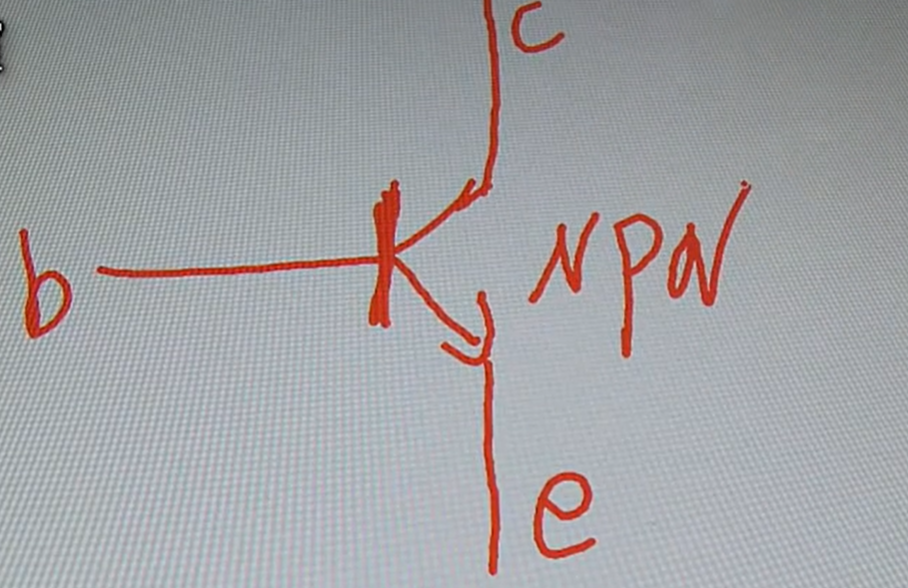 c
b
NPN
e